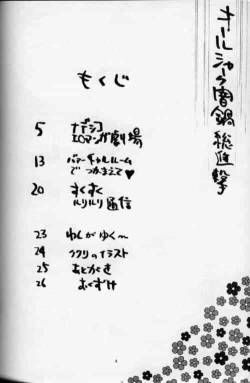 オールジャンル闇鍋総進撃
もくじ
5 ナデシコ
エロマンガ劇場
13 バーチャルルーム
でつかまえて♥
20 すくすく
ルリルリ通信
23 わんがゆく〜
24 ククリのイラスト
25 あとがき
26 おくずけ